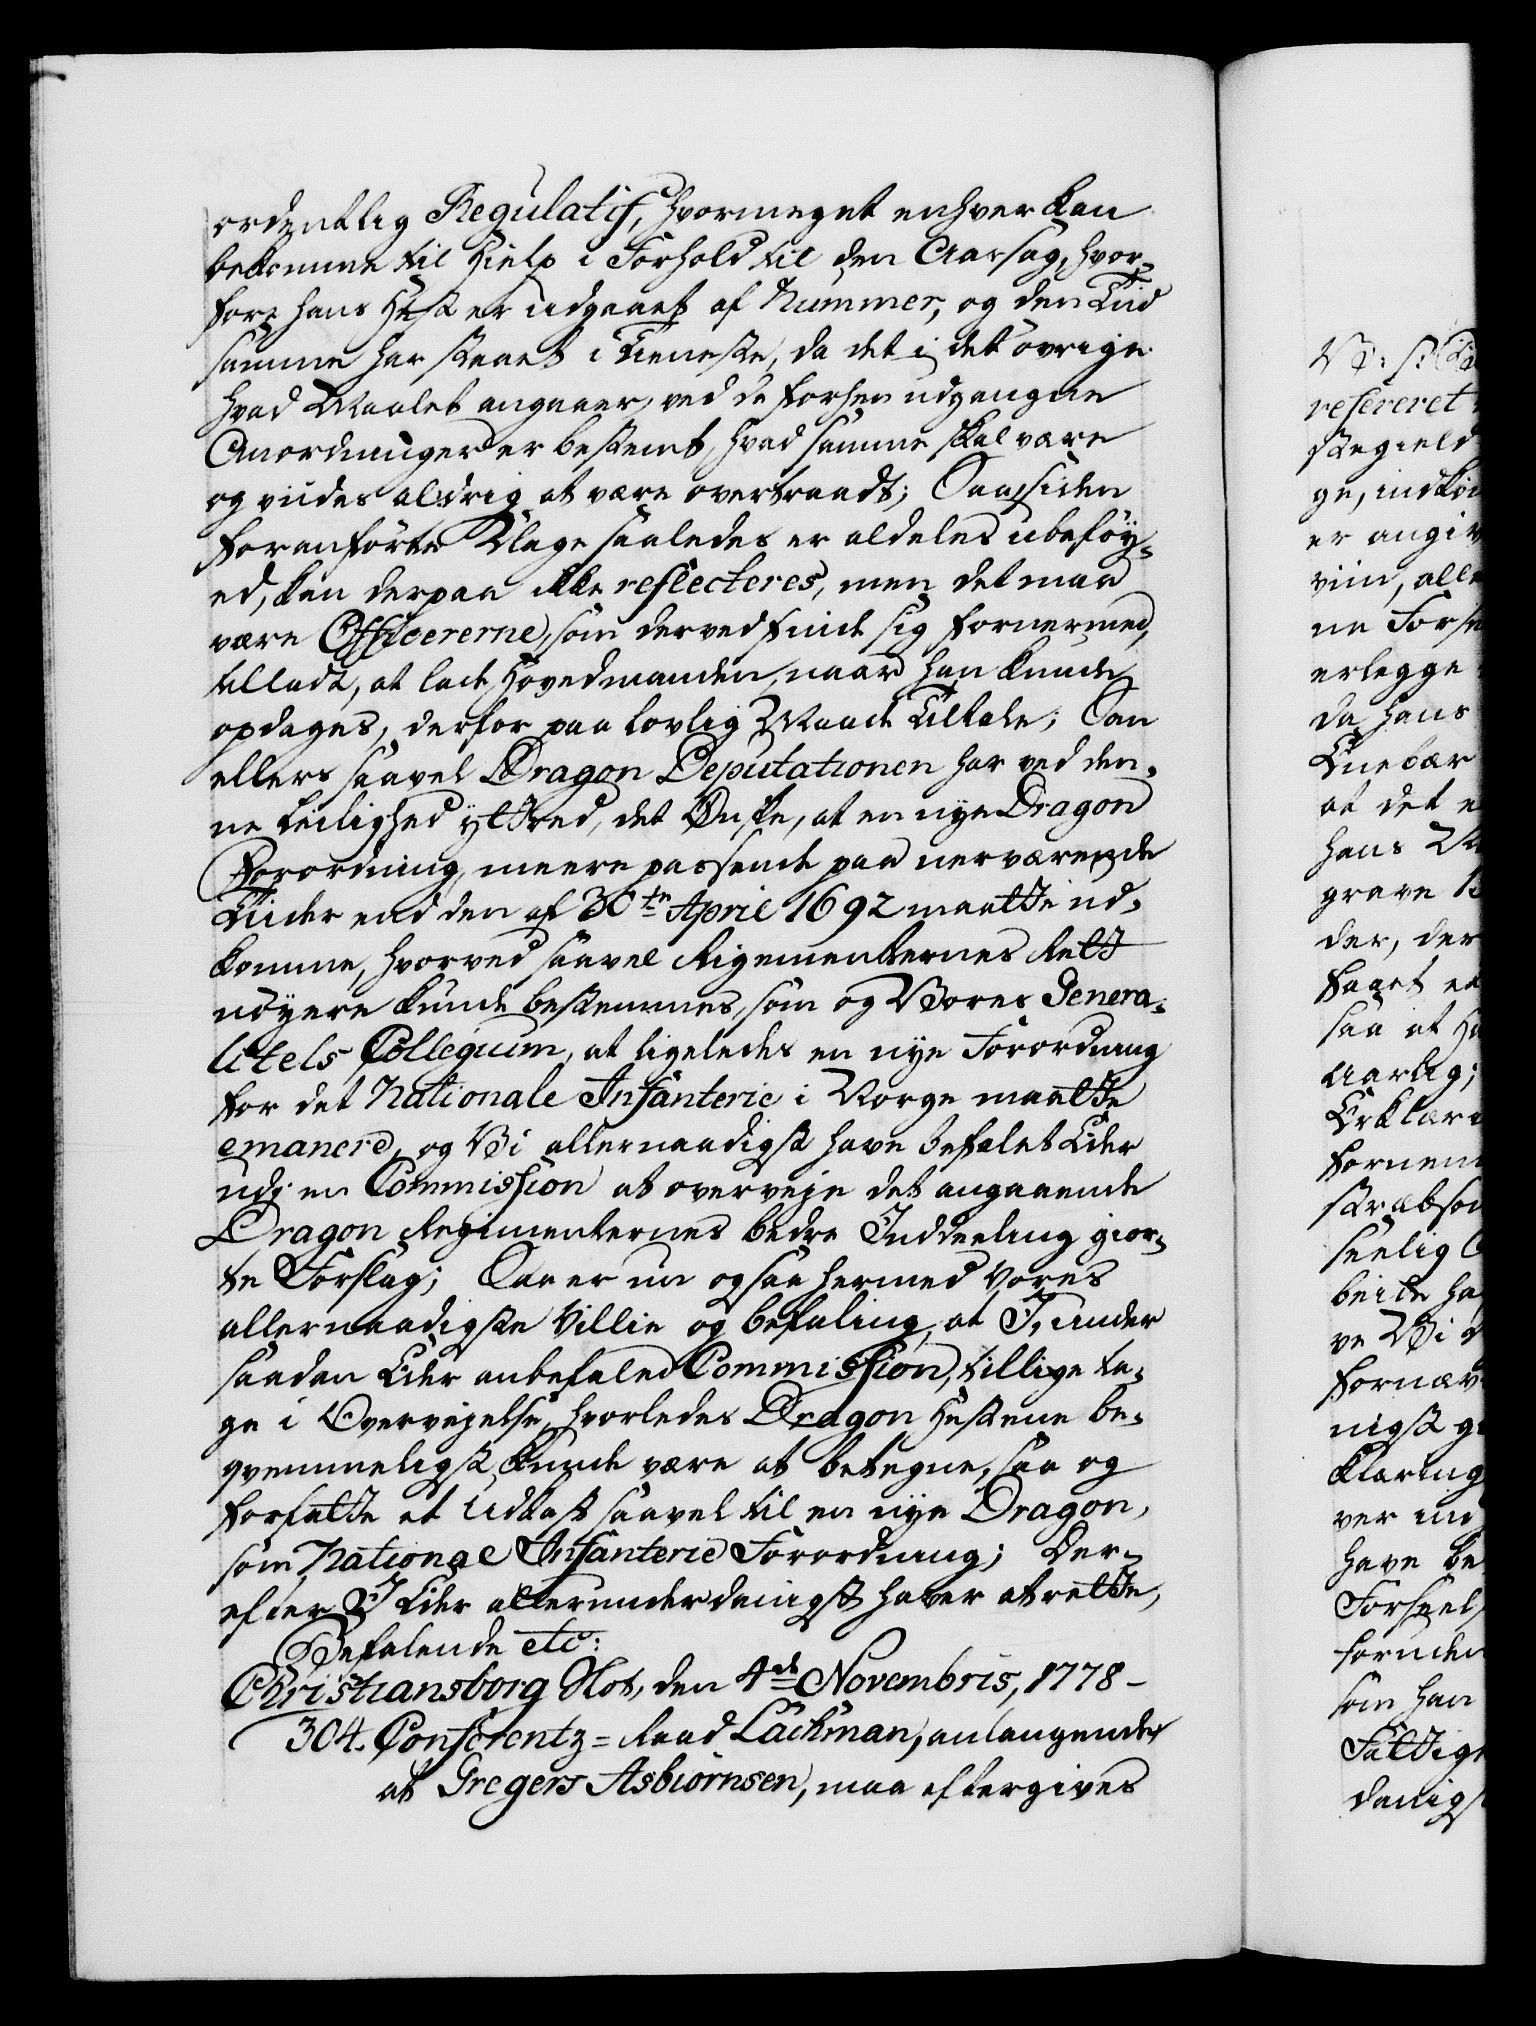 ordentlig Regulatif, hvormeget enhver kan
bekomme til Hielp i Forhold til den Aarsag, hvor-
fore hans Hest er udgaaet af Nummer, og den Tiid
samme har staaet i Tieneste, da det i det øvrige
hvad Maalet angaaer, ved de forhen udgangne
Anordninger er bestemt, hvad samme skal være
og viides aldrig at være overtraadt; Saasiden
foranførte Klage saaledes er aldeles ubeføy-
ed, kan derpaa ikke reflecteres, men det maa
være Officererne, som derved finde sig fornermed,
tilladt, at lade Hovedmanden, naar han kunde
opdages, derfor paa lovlig Maade tiltale; Som
ellers saavel Dragon Deputationen har ved den-
ne Leilighed yttred, det Ønske, at en nye Dragon
Forordning, meere passende paa nerværende
Tiider end den af 30te April 1692 maatte ud-
komme, hvorved saavel Regementernes Rett
nøyere kunde bestemmes, som og Vores Genera-
litets Collegium, at ligeledes en nye Forordning
for det Nationale Infanterie i Norge maatte
emanere, og Vi allernaadigst have befalet Eder
udj en Commission at overveje det angaaende
Dragon Regimenternes bedre Inddeeling gior-
te Forslag; Saa er nu ogsaa hermed Vores
allernaadigste Villie og befaling, at I, under
saadan Eder anbefaled Commission, tillige ta-
ge i Overvejelse, hvorledes Dragon Hestene be-
qvemmeligst kunde være at betegne, saa og
forfatte et Udkast saavel til en nye Dragon,
som National Infanterie Forordning; Der-
efter I Eder allerunderdanigst haver at rette,
Befalende etc:
Christiansborg Slot, den 4de Novembris, 1778 -
304. Conferentz-Raad Lachman, anlangende
at Gregers Asbiørnsen, maa eftergives
refereret
ge, indkiø
er angiv
viin, alle
ne Forse
erlegge
da hans
at det e
hans
grave
der, der
faaet
saa at
Aarlig;
Erklær
beide ha
ve Vi
nigst
klæring
ver
have be
Forseel
foruden
som han
danigst